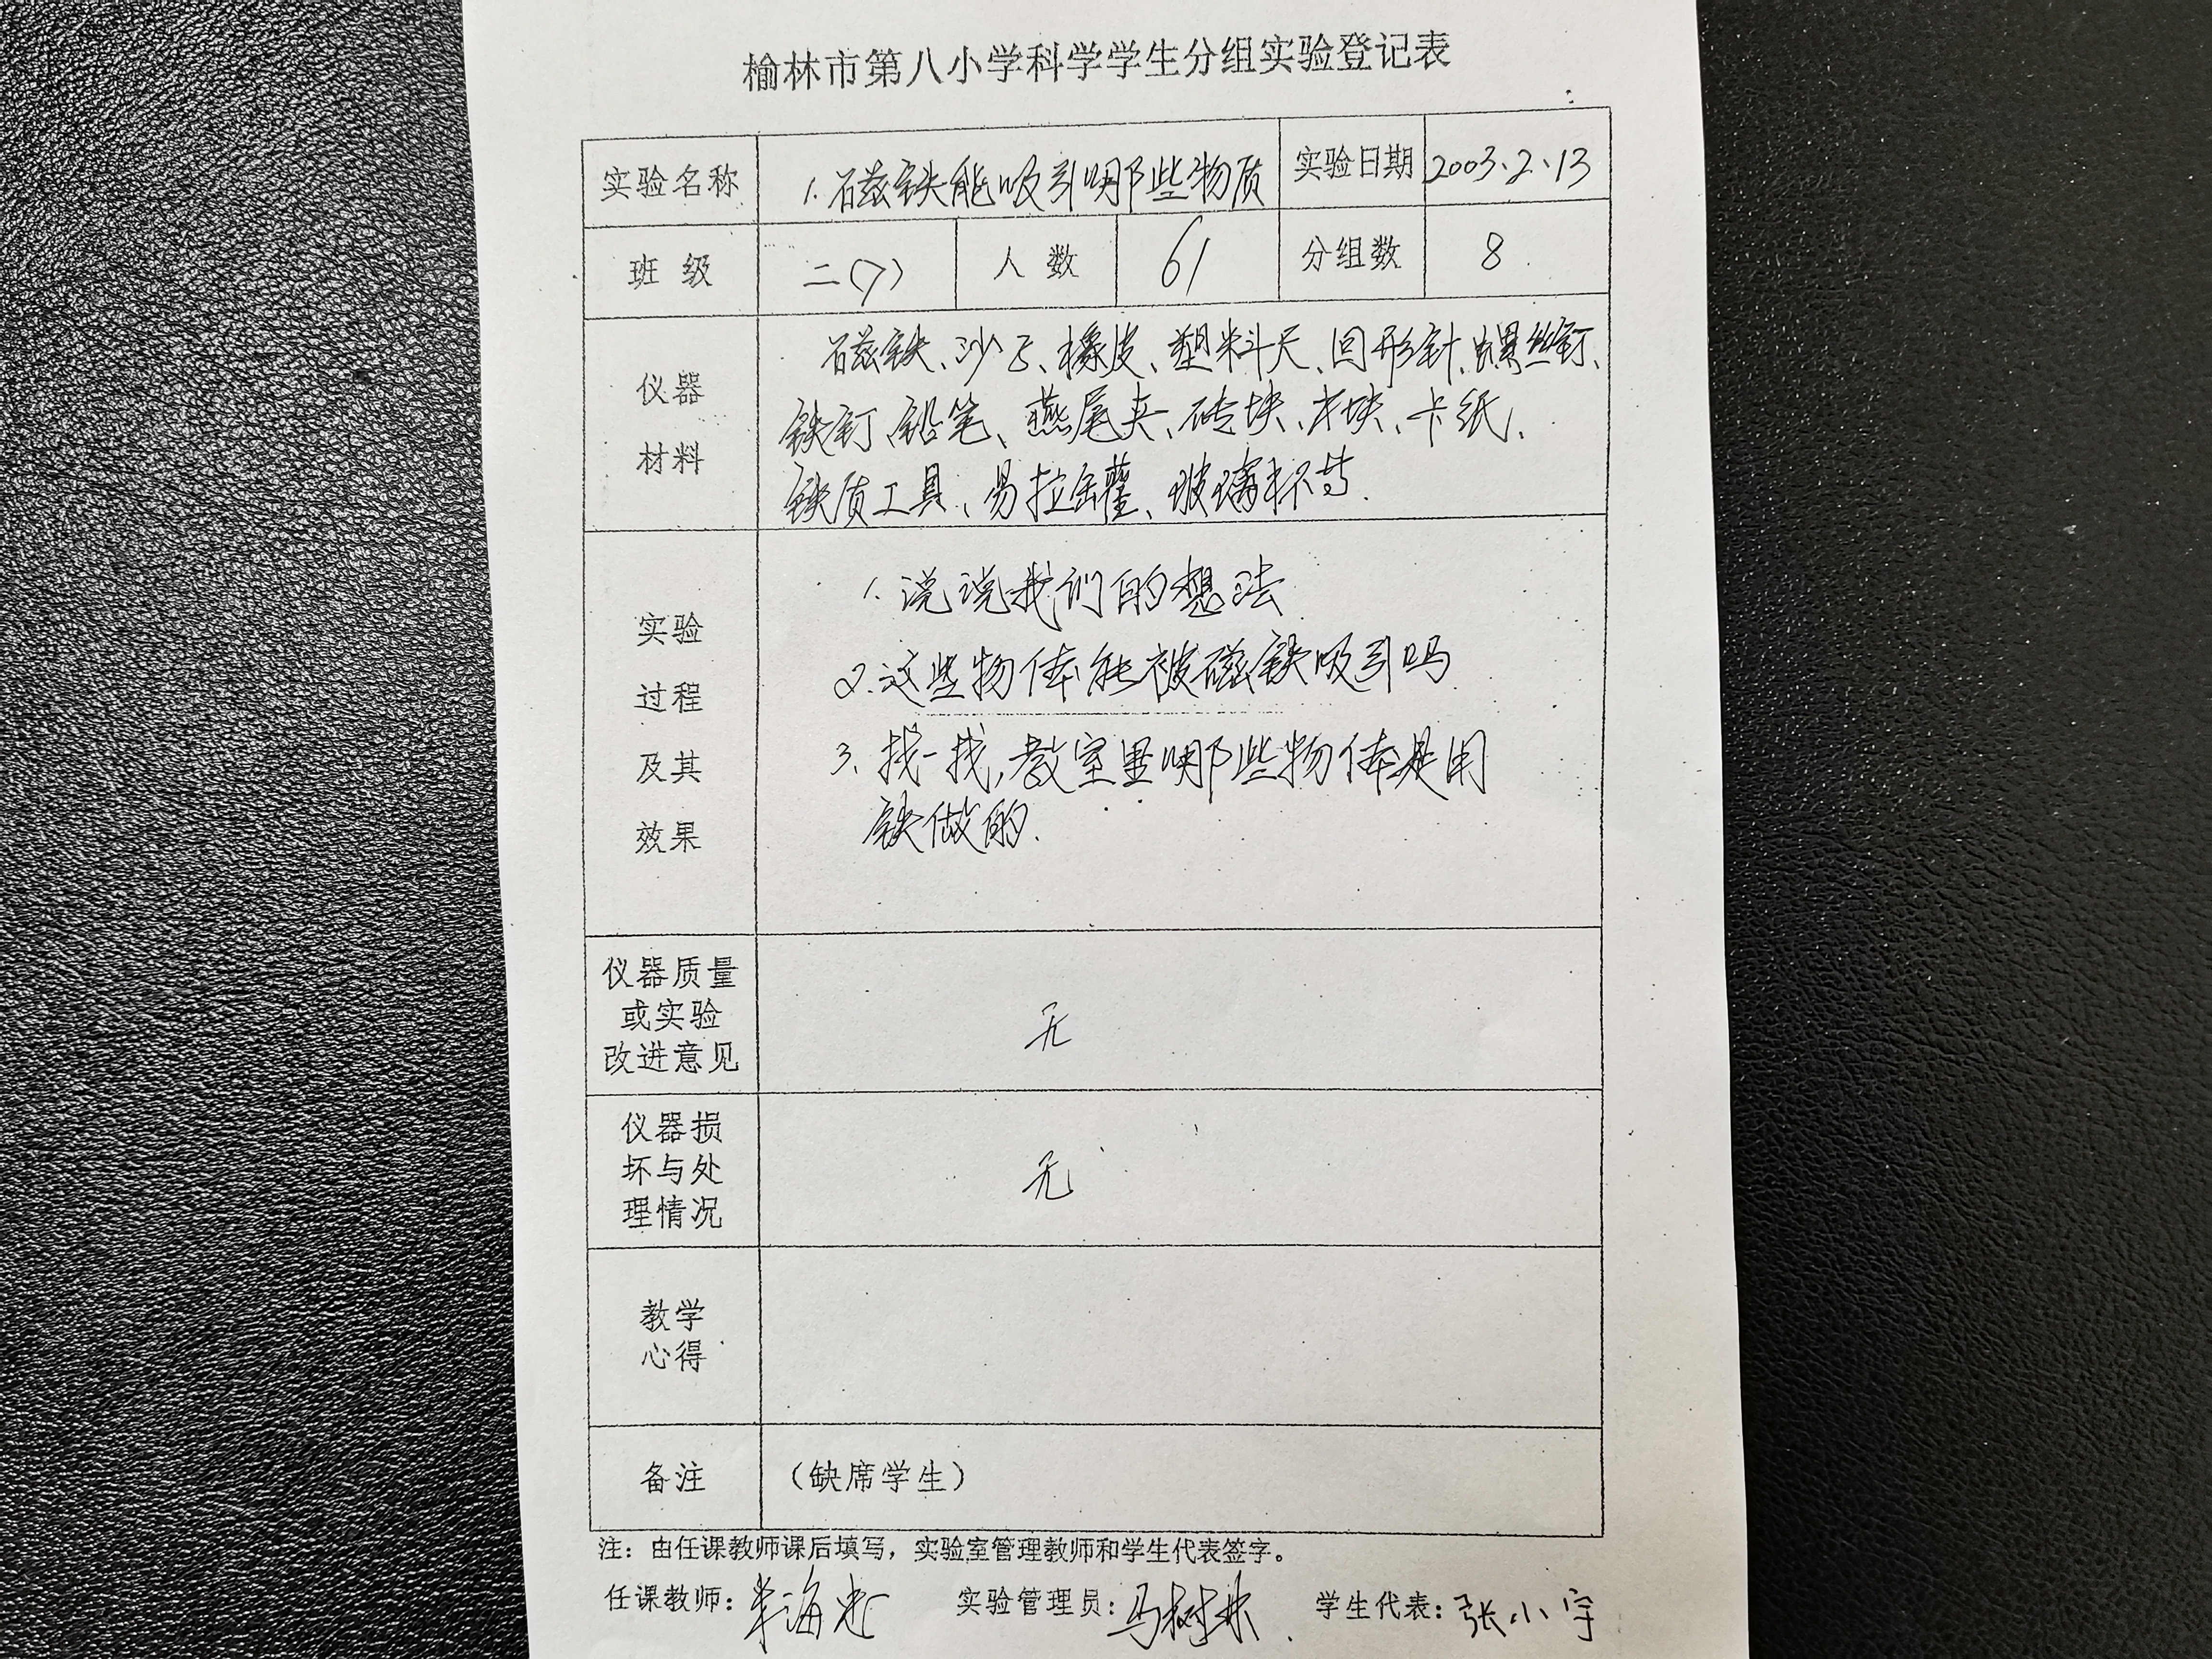 榆林市第八小学科学学生分组实验登记表
实验名称 1.磁铁能吸引哪些物质 实验日期 2003.2.13
班 级 二(7) 人 数 61 分组数 8
仪器
材料
磁铁、沙子、橡皮、塑料尺、回形针、螺丝钉、
铁钉、铅笔、燕尾夹、砖块、木块、卡纸、
铁质工具、易拉罐、玻璃杯等.
实验
过程
及其
效果
1.说说我们的想法
2.这些物体能被磁铁吸引吗
3.找一找,教室里哪些物体是用
铁做的.
仪器质量
或实验
改进意见
无
仪器损
坏与处
理情况
无
教学
心得
备注 （缺席学生）
注：由任课教师课后填写，实验室管理教师和学生代表签字。
任课教师： 实验管理员：马树林 学生代表：张小宇